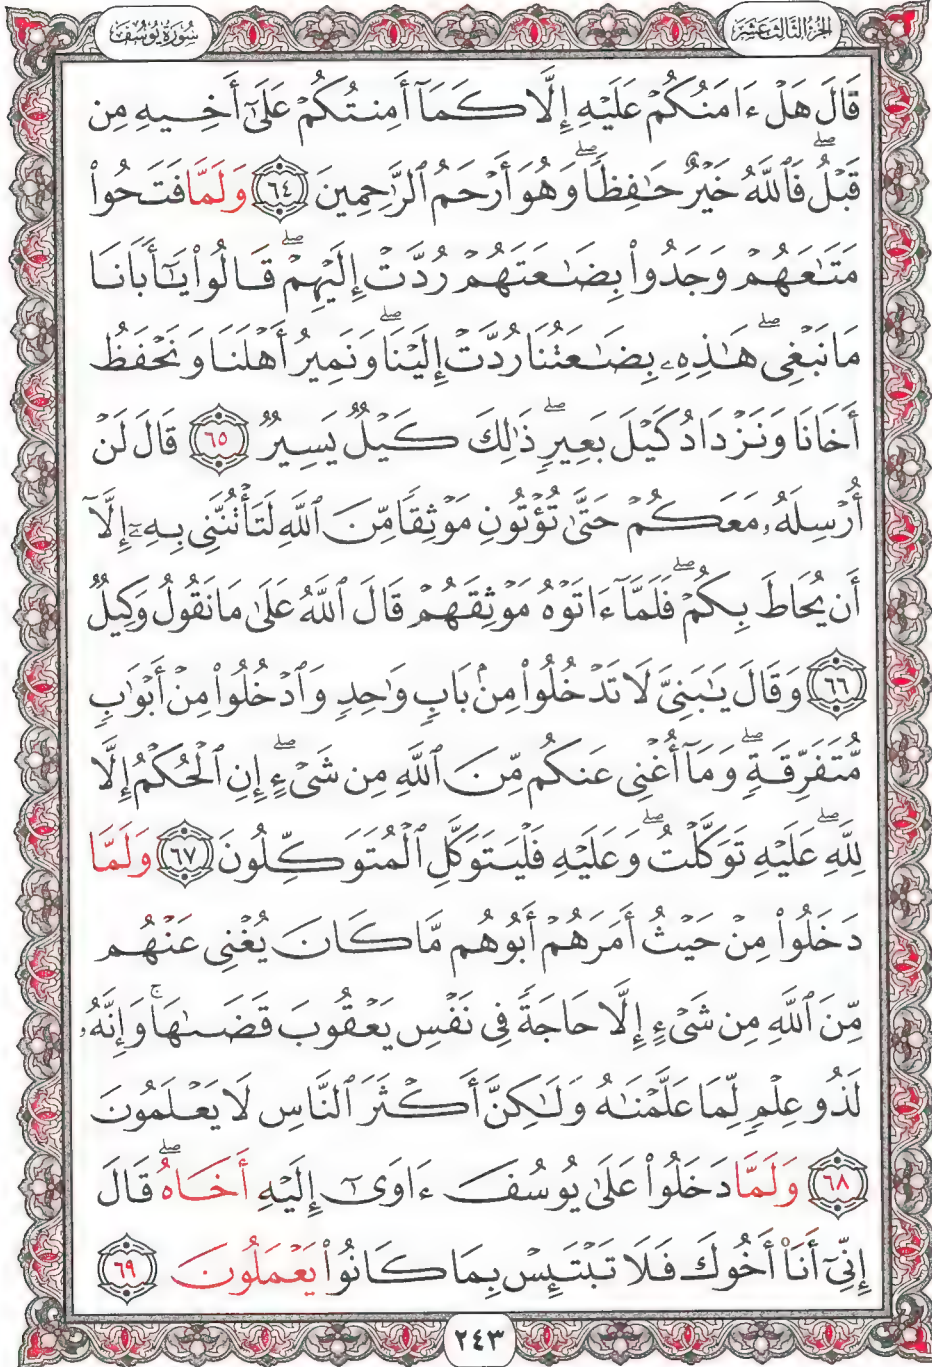 الجزء الثالث عشر
سورة يوسف
قَالَ هَلْ ءَامَنُكُمْ عَلَيْهِ إِلَّا كَمَآ أَمِنتُكُمْ عَلَىٰٓ أَخِيهِ مِن
قَبْلُۖ فَٱللَّهُ خَيْرٌ حَٰفِظًاۖ وَهُوَ أَرْحَمُ ٱلرَّٰحِمِينَ ﴿٦٤﴾ وَلَمَّا فَتَحُوا۟
مَتَٰعَهُمْ وَجَدُوا۟ بِضَٰعَتَهُمْ رُدَّتْ إِلَيْهِمْۖ قَالُوا۟ يَٰٓأَبَانَا
مَا نَبْغِىۖ هَٰذِهِۦ بِضَٰعَتُنَا رُدَّتْ إِلَيْنَاۖ وَنَمِيرُ أَهْلَنَا وَنَحْفَظُ
أَخَانَا وَنَزْدَادُ كَيْلَ بَعِيرٍۖ ذَٰلِكَ كَيْلٌ يَسِيرٌ ﴿٦٥﴾ قَالَ لَنْ
أُرْسِلَهُۥ مَعَكُمْ حَتَّىٰ تُؤْتُونِ مَوْثِقًا مِّنَ ٱللَّهِ لَتَأْتُنَّنِى بِهِۦٓ إِلَّآ
أَن يُحَاطَ بِكُمْۖ فَلَمَّآ ءَاتَوْهُ مَوْثِقَهُمْ قَالَ ٱللَّهُ عَلَىٰ مَا نَقُولُ وَكِيلٌ
﴿٦٦﴾ وَقَالَ يَٰبَنِىَّ لَا تَدْخُلُوا۟ مِنۢ بَابٍ وَٰحِدٍ وَٱدْخُلُوا۟ مِنْ أَبْوَٰبٍ
مُّتَفَرِّقَةٍۖ وَمَآ أُغْنِى عَنكُم مِّنَ ٱللَّهِ مِن شَىْءٍۖ إِنِ ٱلْحُكْمُ إِلَّا
لِلَّهِۖ عَلَيْهِ تَوَكَّلْتُۖ وَعَلَيْهِ فَلْيَتَوَكَّلِ ٱلْمُتَوَكِّلُونَ ﴿٦٧﴾ وَلَمَّا
دَخَلُوا۟ مِنْ حَيْثُ أَمَرَهُمْ أَبُوهُم مَّا كَانَ يُغْنِى عَنْهُم
مِّنَ ٱللَّهِ مِن شَىْءٍ إِلَّا حَاجَةً فِى نَفْسِ يَعْقُوبَ قَضَىٰهَاۚ وَإِنَّهُۥ
لَذُو عِلْمٍ لِّمَا عَلَّمْنَٰهُ وَلَٰكِنَّ أَكْثَرَ ٱلنَّاسِ لَا يَعْلَمُونَ
﴿٦٨﴾ وَلَمَّا دَخَلُوا۟ عَلَىٰ يُوسُفَ ءَاوَىٰٓ إِلَيْهِ أَخَاهُۖ قَالَ
إِنِّىٓ أَنَا۠ أَخُوكَ فَلَا تَبْتَئِسْ بِمَا كَانُوا۟ يَعْمَلُونَ ﴿٦٩﴾
٢٤٣